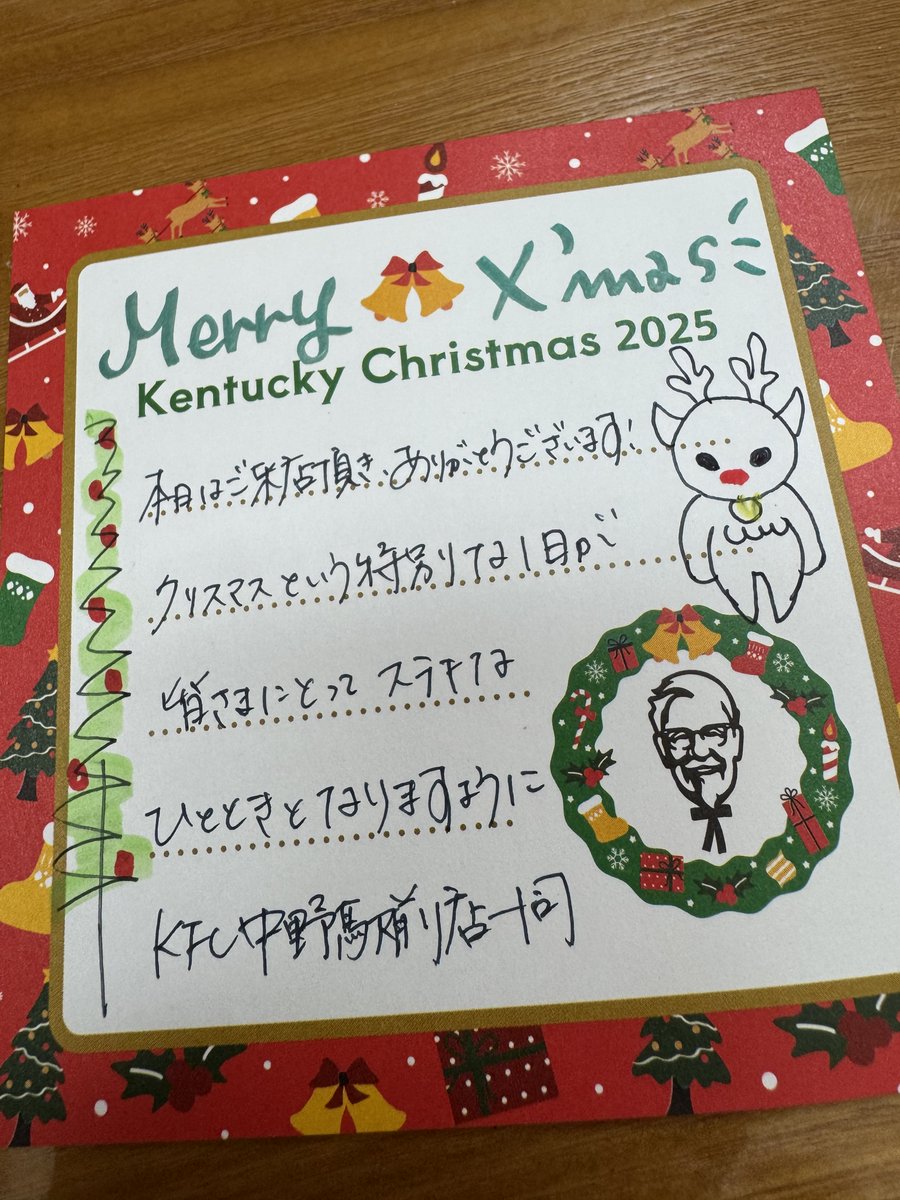 Merry X'mas
Kentucky Christmas 2025
本日はご来店頂き、ありがとうございます!
クリスマスという特別な1日が
皆さまにとって ステキな
ひとときとなりますように
KFC中野駅前店一同